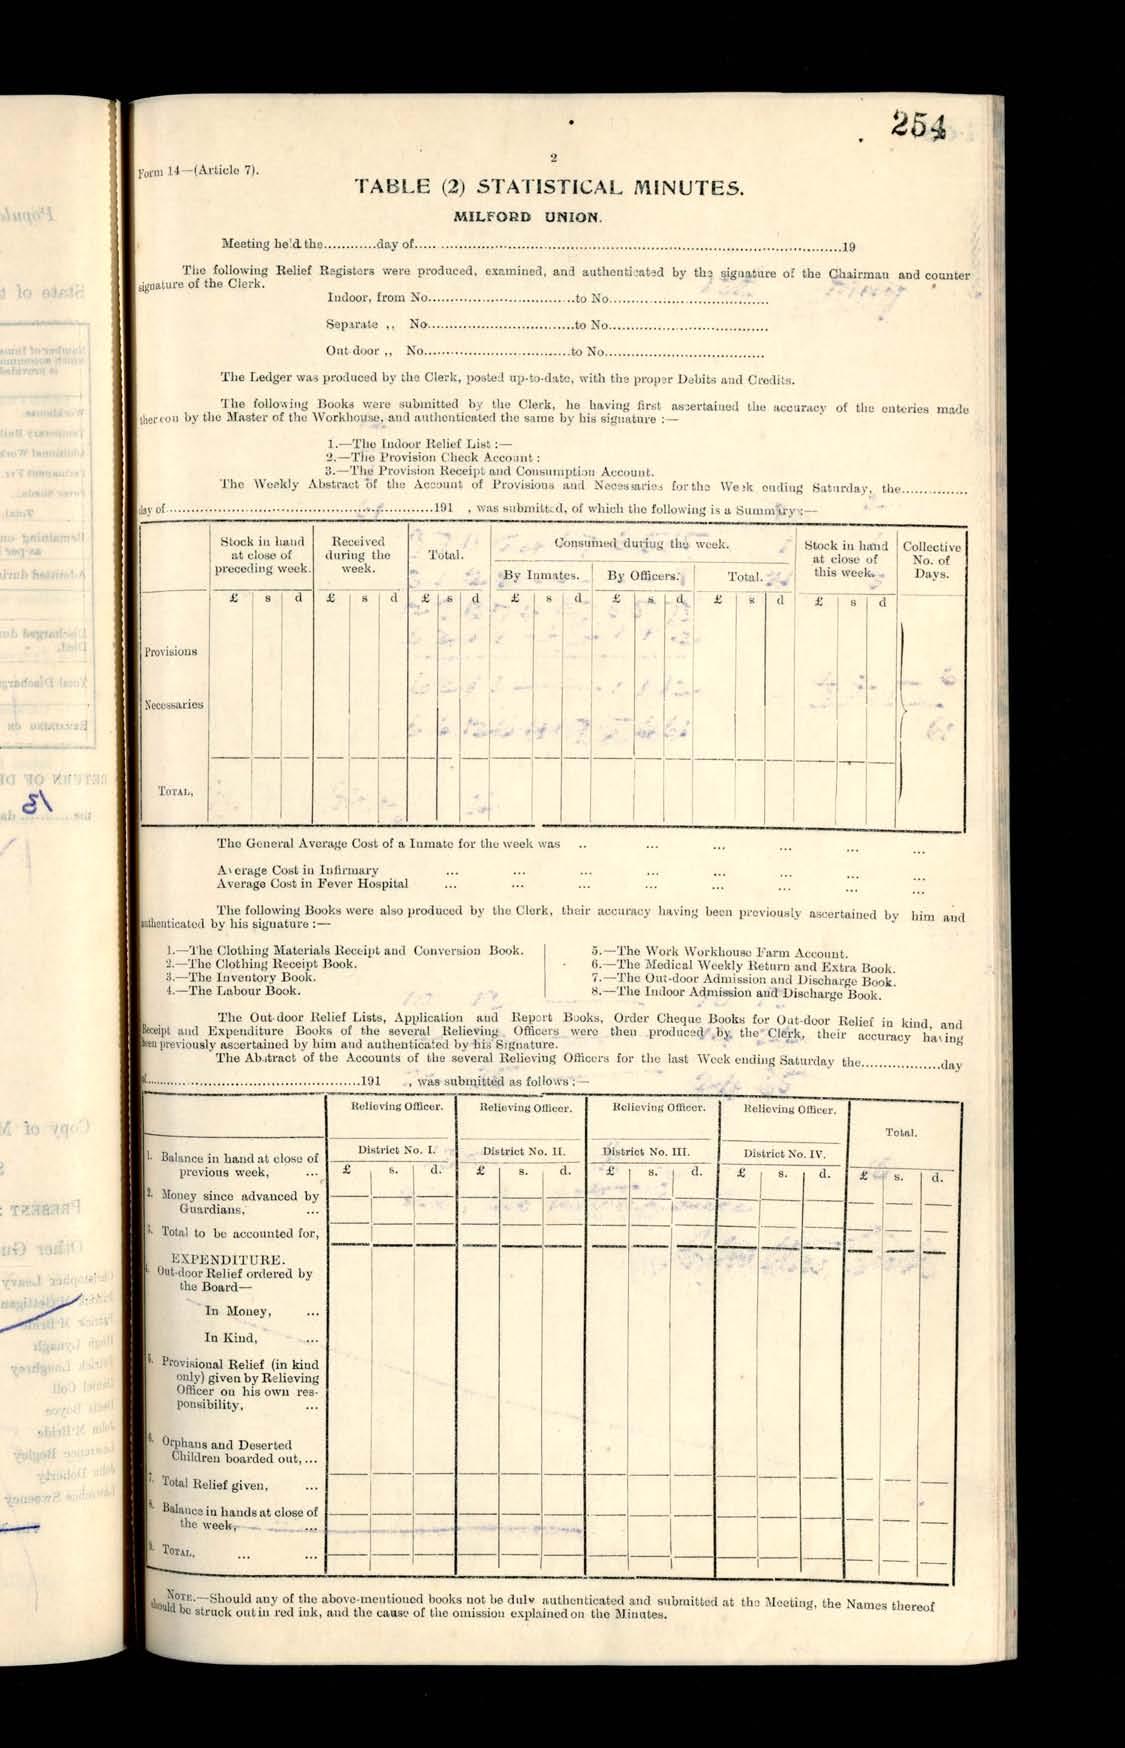 254
2
Form 14—(Article 7).
TABLE (2) STATISTICAL MINUTES.
MILFORD UNION.
Meeting held the............day of..........................................................19
The following Relief Registers were produced, examined, and authenticated by the signature of the Chairman and counter
signature of the Clerk.
Indoor, from No..................................to No....................................
Separate ,, No..................................to No....................................
Out-door ,, No..................................to No....................................
The Ledger was produced by the Clerk, posted up-to-date, with the proper Debits and Credits.
The following Books were submitted by the Clerk, he having first ascertained the accuracy of the enteries made
thereon by the Master of the Workhouse, and authenticated the same by his signature :—
1.—The Indoor Relief List :—
2.—The Provision Check Account :
3.—The Provision Receipt and Consumption Account.
The Weekly Abstract of the Account of Provisions and Necessaries for the Week ending Saturday, the...............
day of..........................................................191 , was submitted, of which the following is a Summary:—
Stock in hand at close of preceding week. Received during the week. Total. Consumed during the week. Stock in hand at close of this week. Collective No. of Days.
By Inmates. By Officers. Total.
£ s d £ s d £ s d £ s d £ s d £ s d £ s d
Provisions
Necessaries
TOTAL,
The General Average Cost of a Inmate for the week was .. ... ... ... ... ...
Average Cost in Infirmary ... ... ... ... ... ... ... ...
Average Cost in Fever Hospital ... ... ... ... ... ... ... ...
The following Books were also produced by the Clerk, their accuracy having been previously ascertained by him and
authenticated by his signature :—
1.—The Clothing Materials Receipt and Conversion Book.
2.—The Clothing Receipt Book.
3.—The Inventory Book.
4.—The Labour Book.
5.—The Work Workhouse Farm Account.
6.—The Medical Weekly Return and Extra Book.
7.—The Out-door Admission and Discharge Book.
8.—The Indoor Admission and Discharge Book.
The Out-door Relief Lists, Application and Report Books, Order Cheque Books for Out-door Relief in kind, and
Receipt and Expenditure Books of the several Relieving Officers were then produced by the Clerk, their accuracy having
been previously ascertained by him and authenticated by his Signature.
The Abstract of the Accounts of the several Relieving Officers for the last Week ending Saturday the..................day
of................................................191 , was submitted as follows :—
Relieving Officer. Relieving Officer. Relieving Officer. Relieving Officer. Total.
District No. I. District No. II. District No. III. District No. IV.
£ s. d. £ s. d. £ s. d. £ s. d. £ s. d.
1. Balance in hand at close of
previous week, ...
2. Money since advanced by
Guardians, ...
3. Total to be accounted for,
EXPENDITURE.
4. Out-door Relief ordered by
the Board—
In Money, ...
In Kind, ...
5. Provisional Relief (in kind
only) given by Relieving
Officer on his own res-
ponsibility, ...
6. Orphans and Deserted
Children boarded out, ...
7. Total Relief given, ...
8. Balance in hands at close of
the week, ...
9. TOTAL, ... ...
NOTE.—Should any of the above-mentioned books not be duly authenticated and submitted at the Meeting, the Names thereof
should be struck out in red ink, and the cause of the omission explained on the Minutes.